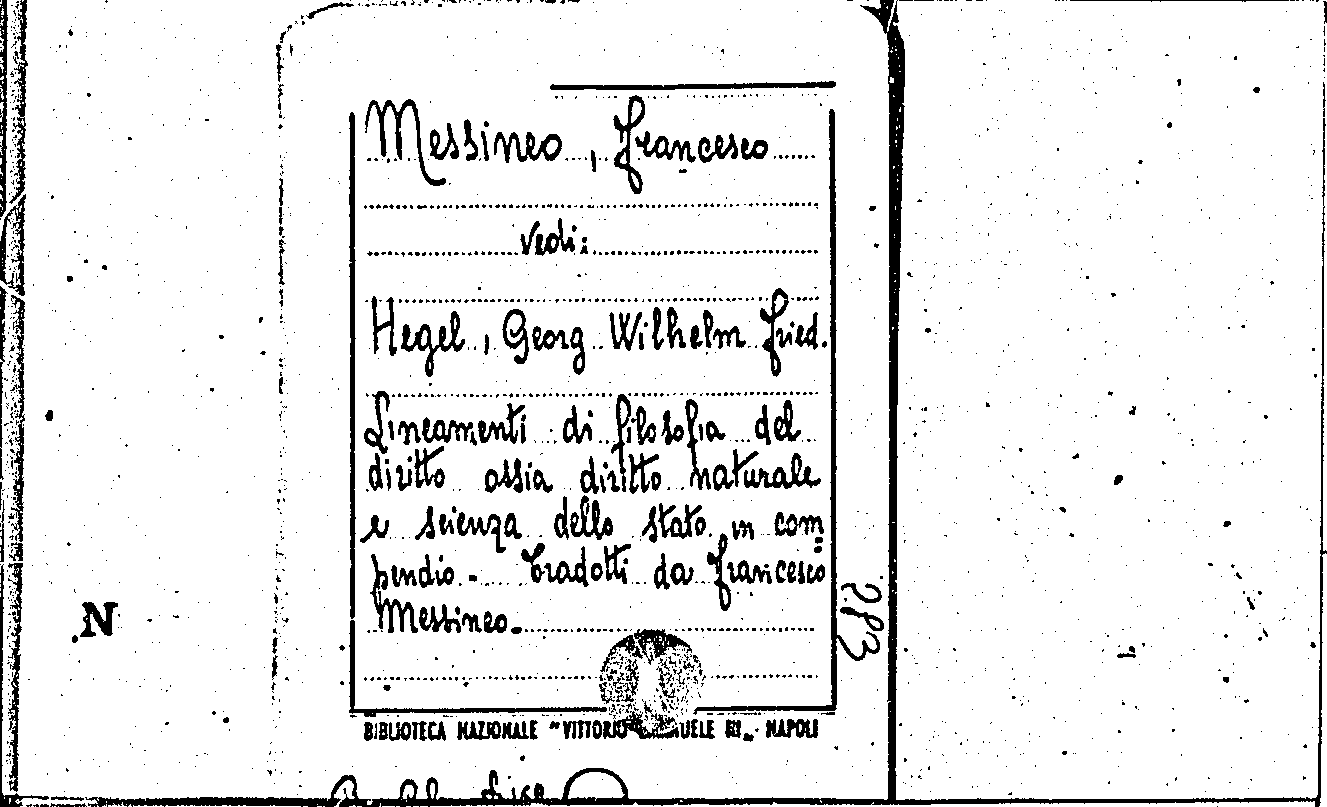 Messineo, Francesco
vedi:
Hegel, Georg Wilhelm Fried.
Lineamenti di filosofia del
diritto ossia diritto naturale
e scienza dello stato in com=
pendio - Tradotti da Francesco
Messineo.
283
N
BIBLIOTECA NAZIONALE "VITTORIO EMANUELE III" NAPOLI